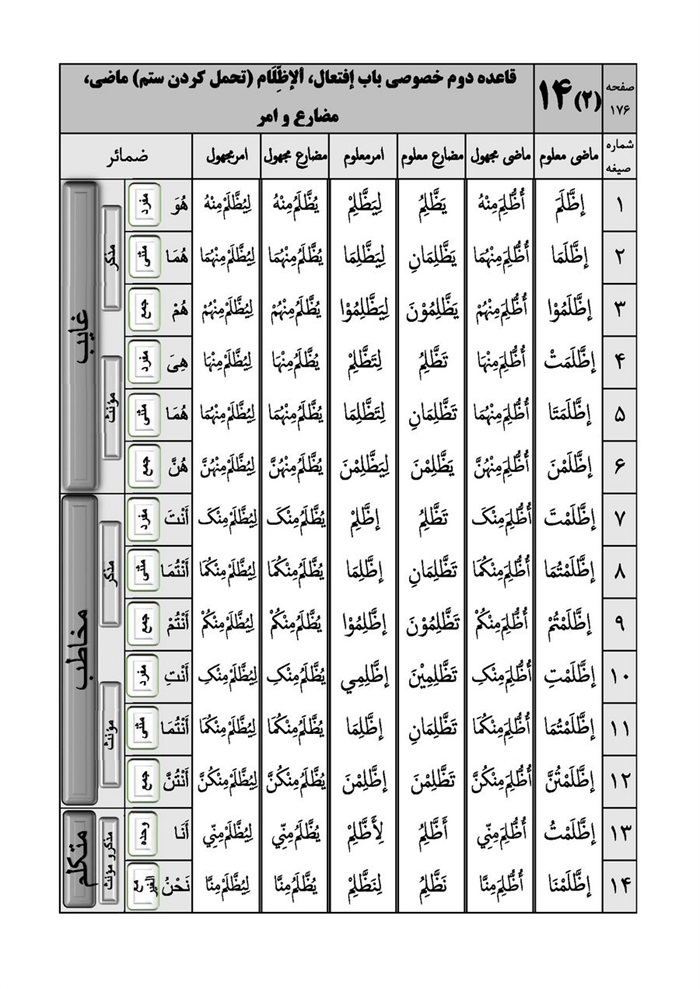 صفحه ۱۷۶
۱۴ (۲)
قاعده دوم خصوصی باب إفتعال، ألإظِّلَام (تحمل کردن ستم) ماضی،
مضارع و امر
شماره صیغه ماضی معلوم ماضی مجهول مضارع معلوم امرمعلوم مضارع مجهول امرمجهول ضمائر
۱ إظَّلَمَ أُظُّلِمَ مِنْهُ يَظَّلِمُ لِيَظَّلِمْ يُظَّلَمُ مِنْهُ لِيُظَّلَمْ مِنْهُ هُوَ مفرد مذکر غایب
۲ إظَّلَمَا أُظُّلِمَ مِنْهُمَا يَظَّلِمَانِ لِيَظَّلِمَا يُظَّلَمُ مِنْهُمَا لِيُظَّلَمْ مِنْهُمَا هُمَا مثنی
۳ إظَّلَمُوْا أُظُّلِمَ مِنْهُمْ يَظَّلِمُوْنَ لِيَظَّلِمُوْا يُظَّلَمُ مِنْهُمْ لِيُظَّلَمْ مِنْهُمْ هُمْ جمع
۴ إظَّلَمَتْ أُظُّلِمَ مِنْهَا تَظَّلِمُ لِتَظَّلِمْ يُظَّلَمُ مِنْهَا لِيُظَّلَمْ مِنْهَا هِيَ مفرد مؤنث
۵ إظَّلَمَتَا أُظُّلِمَ مِنْهُمَا تَظَّلِمَانِ لِتَظَّلِمَا يُظَّلَمُ مِنْهُمَا لِيُظَّلَمْ مِنْهُمَا هُمَا مثنی
۶ إظَّلَمْنَ أُظُّلِمَ مِنْهُنَّ يَظَّلِمْنَ لِيَظَّلِمْنَ يُظَّلَمُ مِنْهُنَّ لِيُظَّلَمْ مِنْهُنَّ هُنَّ جمع
۷ إظَّلَمْتَ أُظُّلِمَ مِنْکَ تَظَّلِمُ إظَّلِمْ يُظَّلَمُ مِنْکَ لِيُظَّلَمْ مِنْکَ أَنْتَ مفرد مذکر مخاطب
۸ إظَّلَمْتُمَا أُظُّلِمَ مِنْکُمَا تَظَّلِمَانِ إظَّلِمَا يُظَّلَمُ مِنْکُمَا لِيُظَّلَمْ مِنْکُمَا أَنْتُمَا مثنی
۹ إظَّلَمْتُمْ أُظُّلِمَ مِنْکُمْ تَظَّلِمُوْنَ إظَّلِمُوْا يُظَّلَمُ مِنْکُمْ لِيُظَّلَمْ مِنْکُمْ أَنْتُمْ جمع
۱۰ إظَّلَمْتِ أُظُّلِمَ مِنْکِ تَظَّلِمِيْنَ إظَّلِمِي يُظَّلَمُ مِنْکِ لِيُظَّلَمْ مِنْکِ أَنْتِ مفرد مؤنث
۱۱ إظَّلَمْتُمَا أُظُّلِمَ مِنْکُمَا تَظَّلِمَانِ إظَّلِمَا يُظَّلَمُ مِنْکُمَا لِيُظَّلَمْ مِنْکُمَا أَنْتُمَا مثنی
۱۲ إظَّلَمْتُنَّ أُظُّلِمَ مِنْکُنَّ تَظَّلِمْنَ إظَّلِمْنَ يُظَّلَمُ مِنْکُنَّ لِيُظَّلَمْ مِنْکُنَّ أَنْتُنَّ جمع
۱۳ إظَّلَمْتُ أُظُّلِمَ مِنِّي أَظَّلِمُ لِأَظَّلِمْ يُظَّلَمُ مِنِّي لِيُظَّلَمْ مِنِّي أَنَا وحده مذکر و مؤنث متکلم
۱۴ إظَّلَمْنَا أُظُّلِمَ مِنَّا نَظَّلِمُ لِنَظَّلِمْ يُظَّلَمُ مِنَّا لِيُظَّلَمْ مِنَّا نَحْنُ مع الغیر